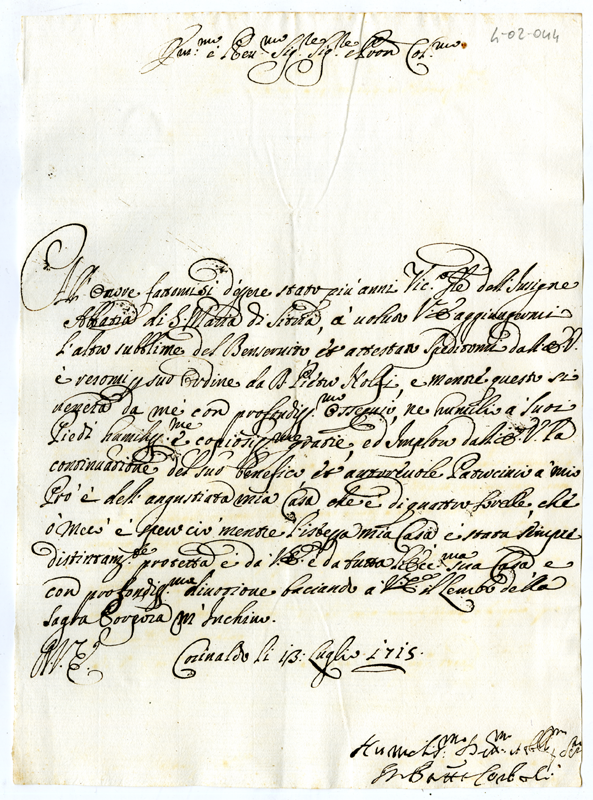 4-02-044
Em.mo e Rev.mo Sig.re Sig.re e Pron Col.mo
All'Onore fattomi di essere stato più anni Vic. Gñle dell'Insigne
Abbazia di S. Maria di Sitria, à voluto V. E. aggiungermi
l'altro sublime del Benservito, et attestato speditomi dall'E. V.
è resomi p suo Ordine da D. Pietro Rolfi, e mentre questo si
venera da mè con profondiss.mo ossequio, ne humilio à suoi
Piedi humiliss.me è copiosiss.me grazie, ed Imploro dall'E. V. la
continuazione del suo benefico et autorevole Patrocinio à mio
Prò è dell'angustiata mia Casa che è di quattro sorelle, chè
ò Meco è spero ciò mentre l'istessa mia Casa è stata sempre
distintam.te protetta è da V. E. e da tutta l'Ecc.ma sua Casa e
con profondiss.ma divozione bacciando a V. E. il Lembo della
Sagra Porpora m'Inchino.
D. V. E.
Corinaldo li 13: Luglio 1715.
Humiliss.mo Dev.mo et Obblig.mo Ser.
G. Batta Corboli